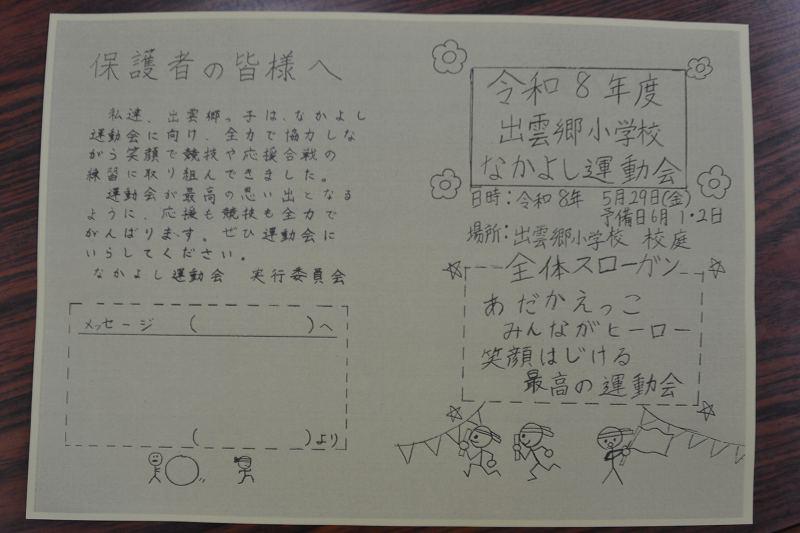 保護者の皆様へ
私達、出雲郷っ子は、なかよし
運動会に向け、全力で協力しな
がら笑顔で競技や応援合戦の
練習に取り組んできました。
運動会が最高の思い出となる
ように、応援も競技も全力で
がんばります。ぜひ運動会に
いらしてください。
なかよし運動会 実行委員会
メッセージ ( )へ
( )より
令和8年度
出雲郷小学校
なかよし運動会
日時:令和8年 5月29日(金)
予備日6月1・2日
場所:出雲郷小学校 校庭
全体スローガン
あだかえっこ
みんながヒーロー
笑顔はじける
最高の運動会